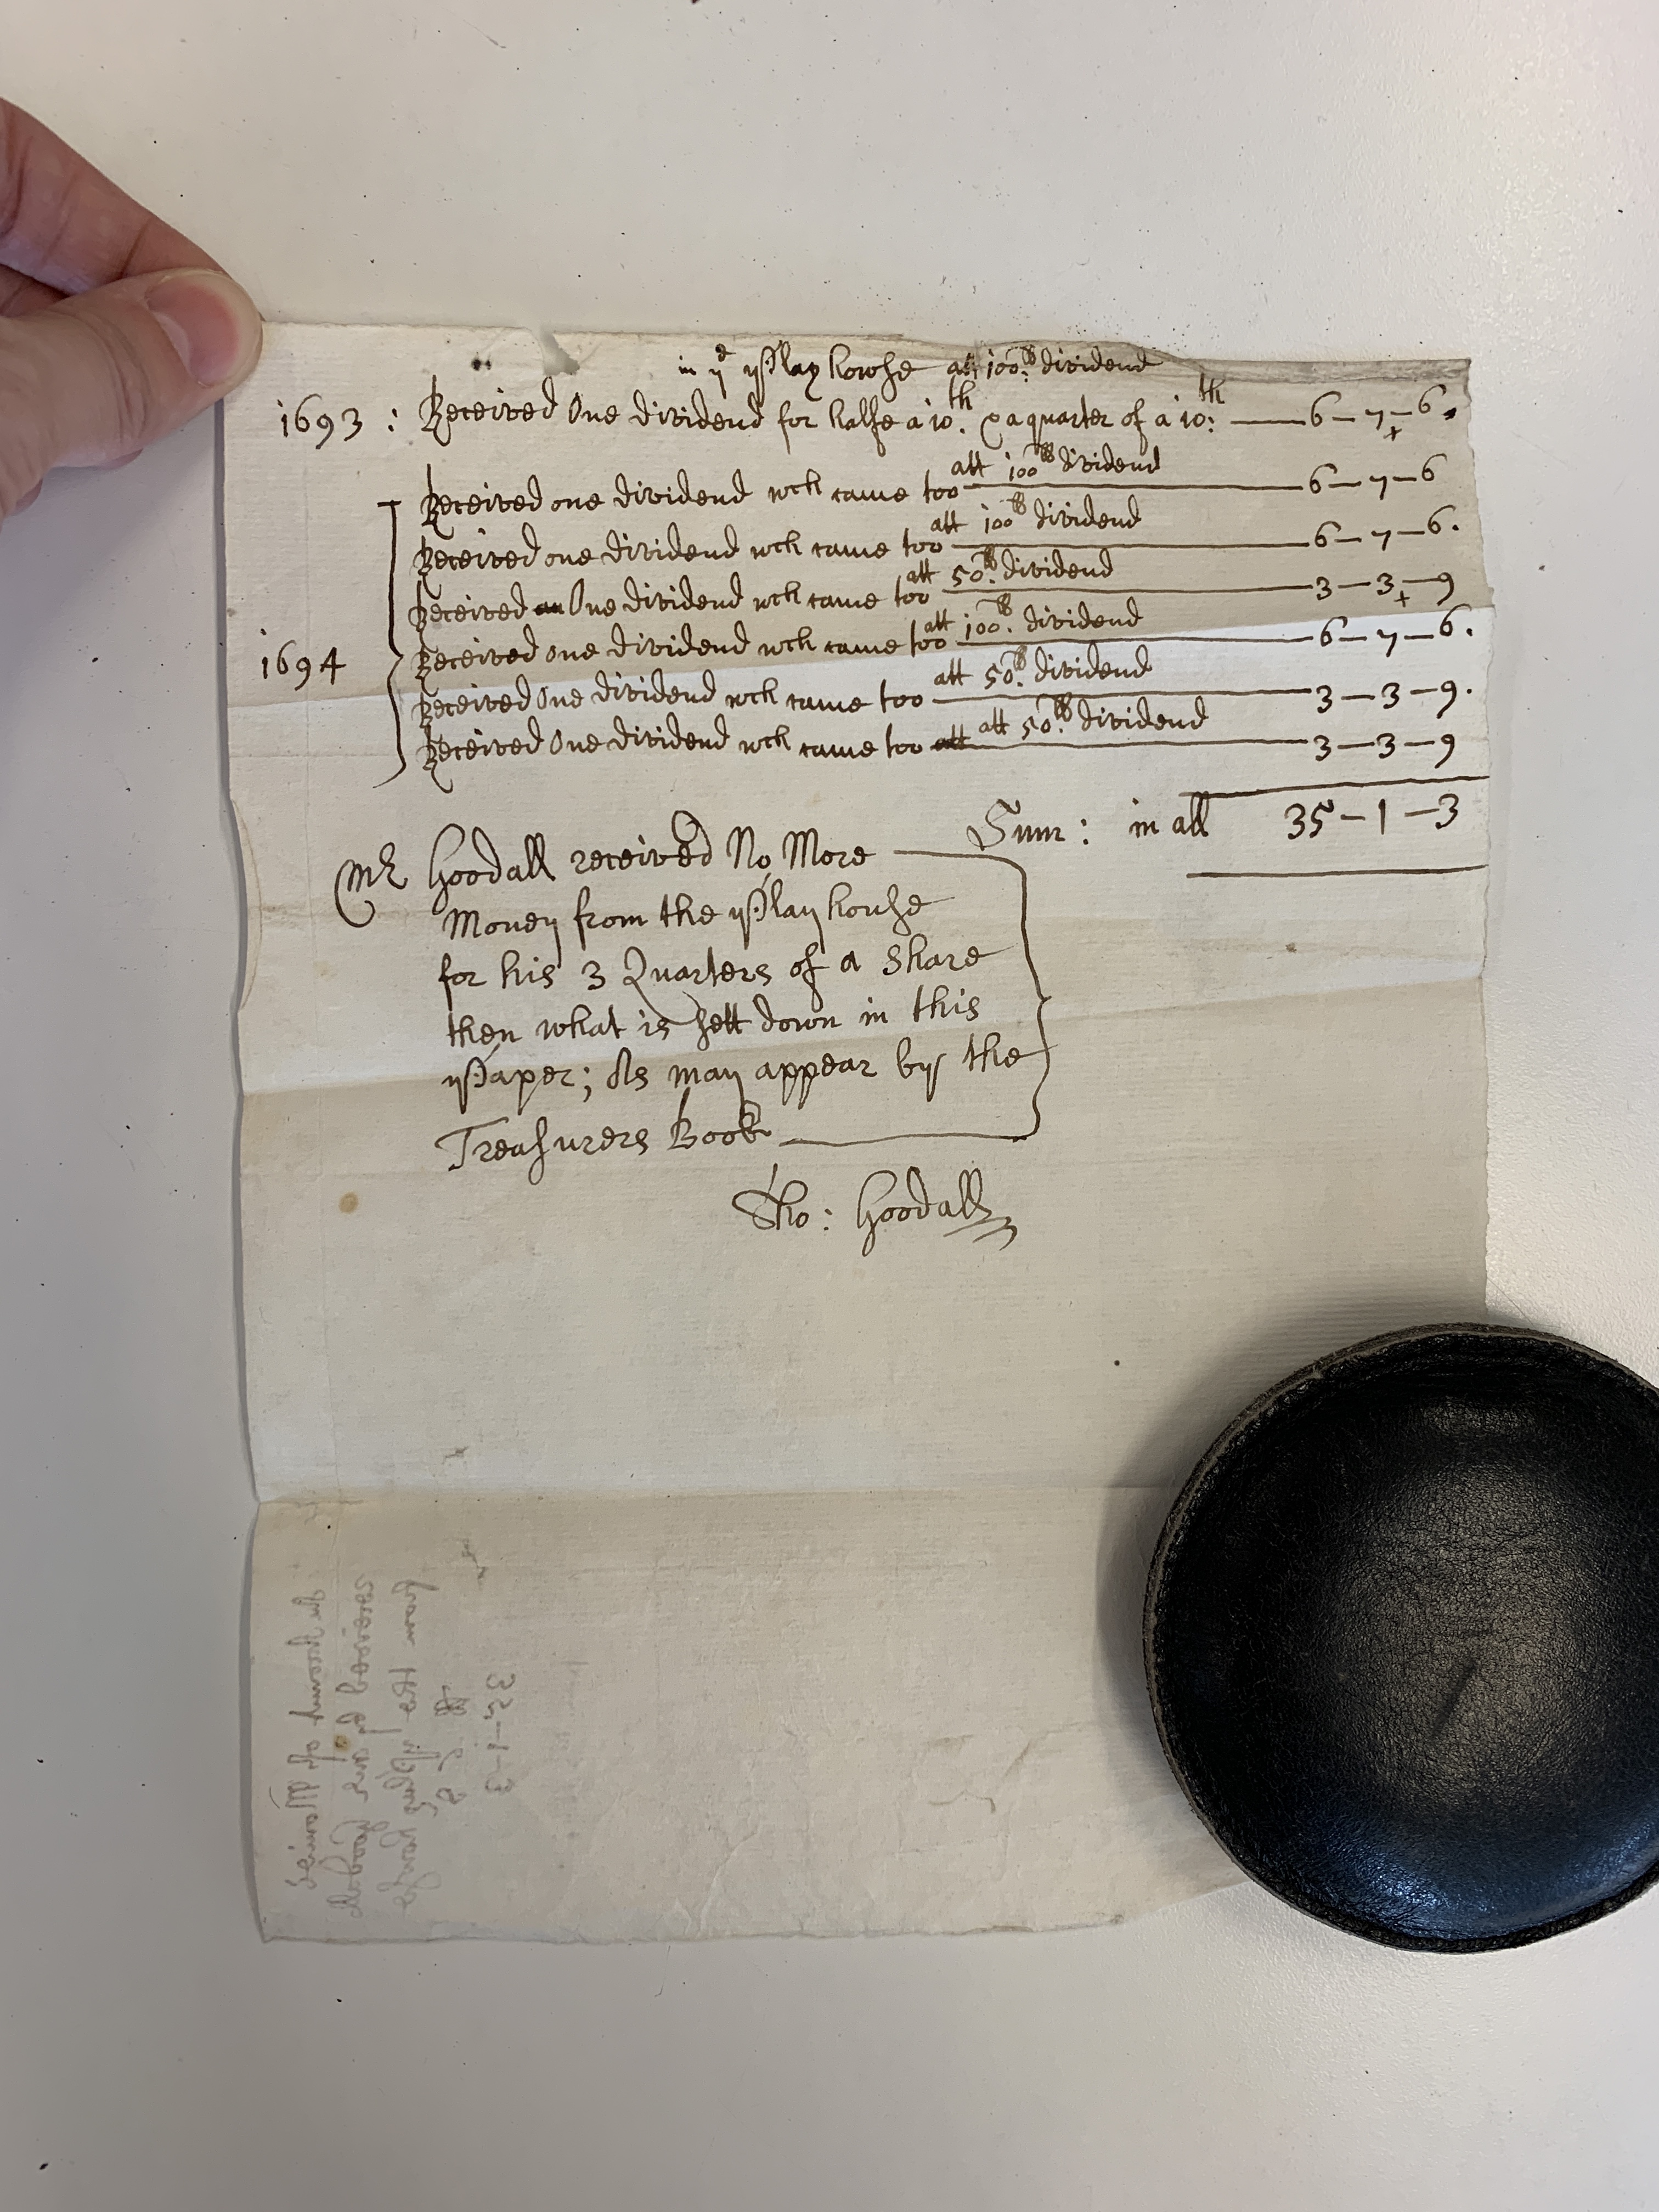 in ye Playhowse att 100.lb dividend
1693 : Received One dividend for halfe a 10.th & a quarter of a 10:th — 6—7—6.
Received one dividend wch came too att 100lb dividend — 6—7—6
Received one dividend wch came too att 100lb dividend — 6—7—6.
Received an One dividend wch came too att 50.lb dividend — 3—3—9
1694 Received one dividend wch came too att 100.lb dividend — 6—7—6.
Received One dividend wch came too att 50.lb dividend — 3—3—9.
Received One dividend wch came too att att 50.lb dividend — 3—3—9
Sum : in all 35—1—3
Mr Goodall received No More
Money from the Playhouse
for his 3 Quarters of a Share
then what is sett down in this
Paper; As may appear by the
Treasurers Book
Tho: Goodall
An Account of Monies
received by me Goodall
from the Playhouse
lb s d
35—1—3